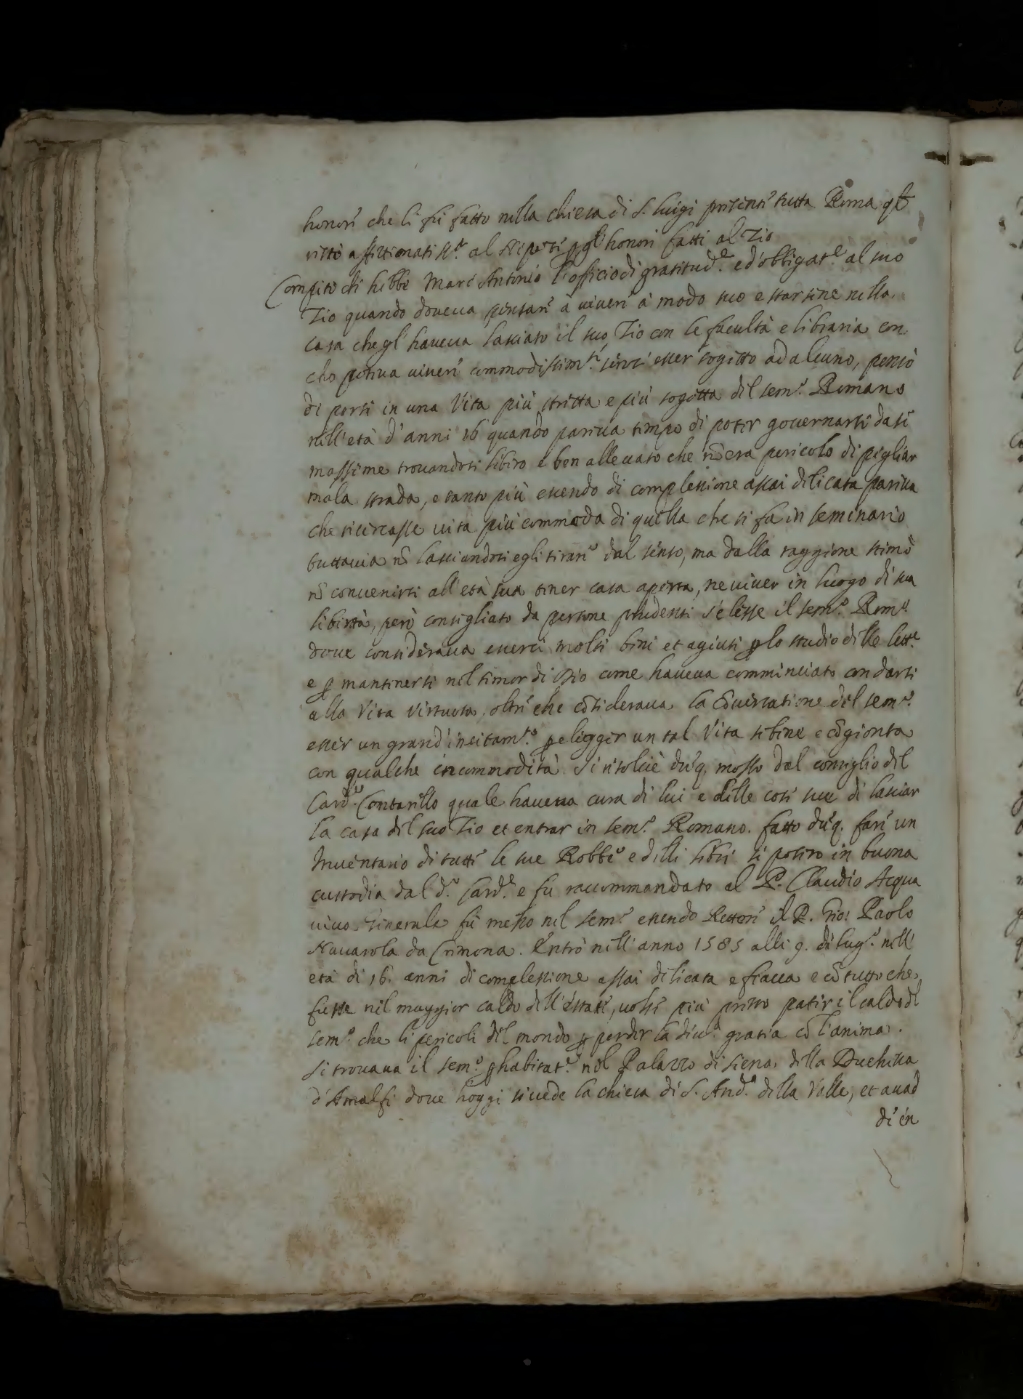 honori che li fu fatto nella chiesa di S. Luigi presente tutta Roma
affettionatiss.º al per gl'honori fatti al Zio
Compito ch'hebbe Marc'Antonio l'officio di gratitud.e ed'obbligat.e al suo
Zio quando doveva à viveri à modo suo e starsene nella
casa che gl haveva lasciato il suo Zio con le facultà e libraria con
che poteva viveri commodissim.te senza esser sogetto ad alcuno, pensò
di porsi in una Vita più stretta e più sogetta del sem.º Romano
nell'età d'anni 16 quando pareva tempo di poter governarsi da se
massime trovandosi libero e ben allevato che nō era pericolo di pigliar
mala strada, e tanto più essendo di complessione assai delicata pareva
che ricercasse vita più commoda di quella che si fa in seminario
tuttavia nō lassiandosi egli tirare dal senso, ma dalla raggione stimò
nō convenirsi all'età sua tener casa aperta, ne viver in luogo di sua
libertà, però consigliato da persone prudenti s'elesse il sem.º Rom.º
dove considerava esserci molti beni et agiuti p lo studio delle lett.e
e p mantenersi nel timor di Dio come haveva comminciato con darsi
alla Vita virtuosa. oltre che cōsiderava la cōversatione del sem.º
esser un grand'incitam.to p elegger un tal Vita sebene e cōgionta
con qualche incommodità. Si risolse dūq. mosso dal consiglio del
Card.l Contarello quale haveva cura di lui e delle cose sue di lasciar
la casa del suo Zio et entrar in sem.º Romano. fatto dūq. fare un
Inventario di tutte le sue Robbe e delli libri si posero in buona
custodia dal d.º Card.e e fu raccommandato al P. Claudio Acqua
viva Generale fù messo nel sem.º essendo Rettore il P. Gio: Paolo
Navarola da Cremona. Entrò nell'anno 1585 alli 9. di lug.º nell'
età di 16. anni di complessione assai delicata e fiacca e cō tutto che
fusse nel maggior caldo dell'estate, volse più presto patir il caldo del
sem.º che li pericoli del mondo p perder la div.ª gratia cō l'anima.
Si trovava il sem.º p habitat.e nel Palazzo di Siena, della Duchessa
d'Amalfi dove hoggi si vede la chiesa di S. And.ª della Valle, et
di in